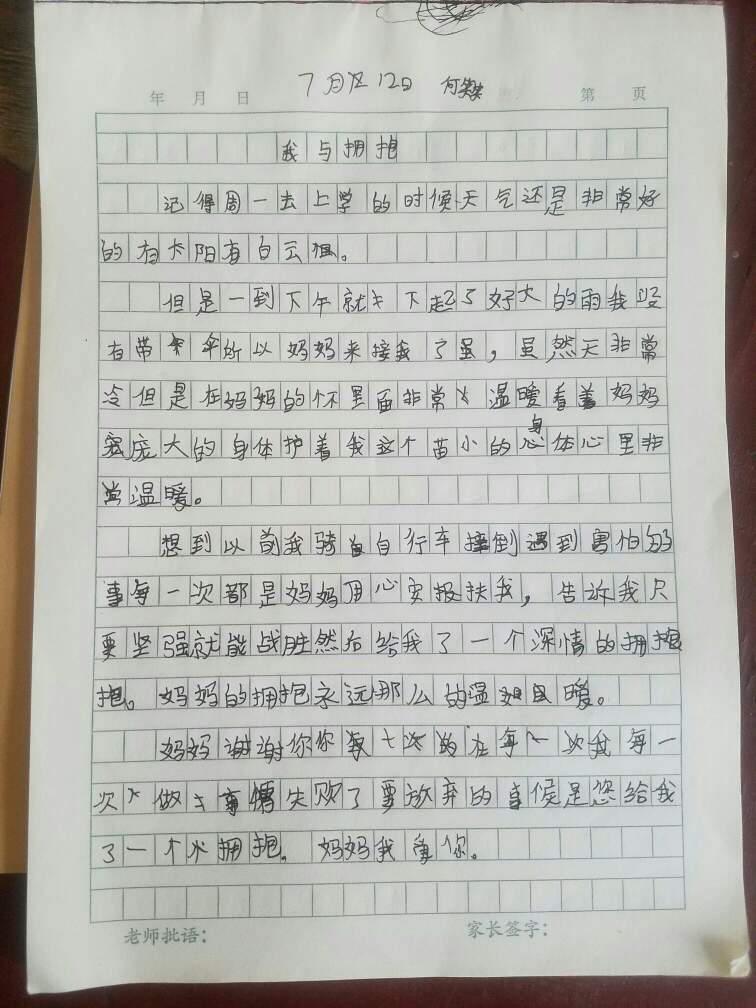 年 月 日 7月12日 何 第 页
我与拥抱
记得周一去上学的时候天气还是非常好
的有太阳有白云。
但是一到下午就下起了好大的雨我没
有带伞所以妈妈来接我了,虽然天非常
冷但是在妈妈的怀里面非常温暖看着妈妈
庞大的身体护着我这个苗小的身体心里非
常温暖。
想到以前我骑自行车撞倒遇到害怕的
事每一次都是妈妈用心安报扶我,告诉我只
要坚强就能战胜然后给我了一个深情的拥抱
抱。妈妈的拥抱永远那么的温暖。
妈妈谢谢你你在每一次我每一
次做事情失败了要放弃的事候是您给我
了一个拥抱。妈妈我你。
老师批语: 家长签字: